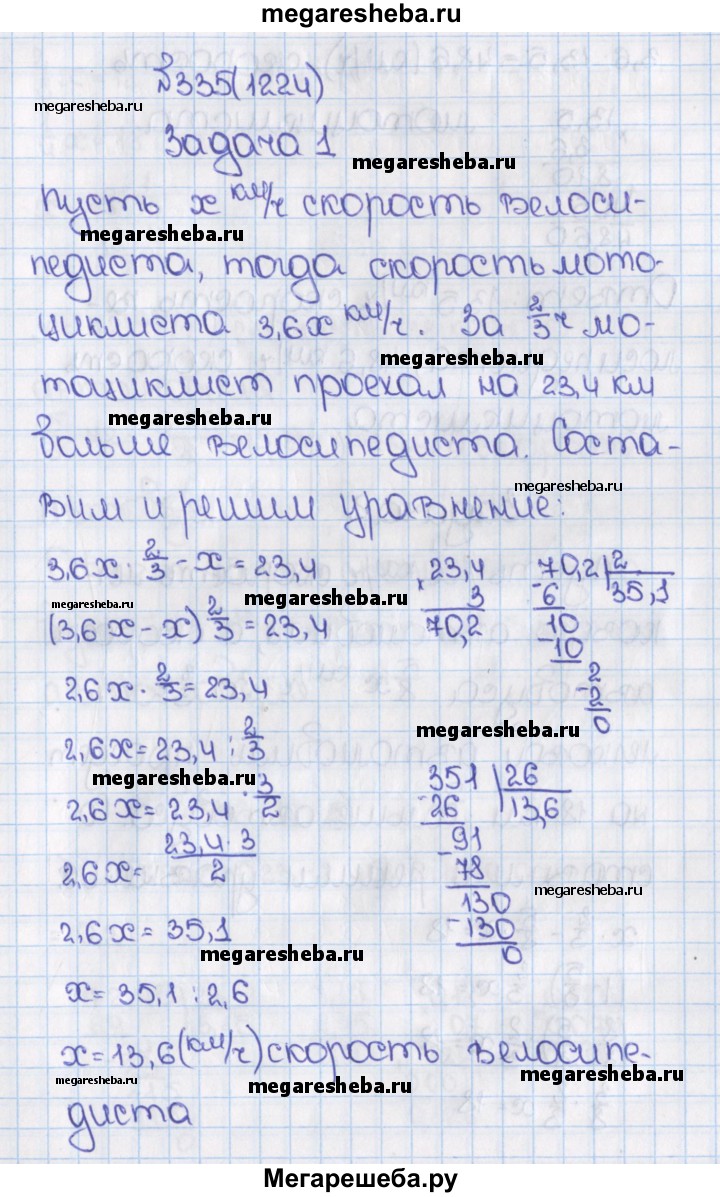 megaresheba.ru
№335(1224)
megaresheba.ru
Задача 1
megaresheba.ru
Пусть x км/ч скорость велоси-
megaresheba.ru
педиста, тогда скорость мото-
циклиста 3,6x км/ч. За 2/3 ч мо-
megaresheba.ru
тоциклист проехал на 23,4 км
megaresheba.ru
больше велосипедиста. Соста-
megaresheba.ru
вим и решим уравнение:
3,6x · 2/3 - x = 23,4
megaresheba.ru
(3,6x - x) 2/3 = 23,4
2,6x · 2/3 = 23,4
2,6x = 23,4 : 2/3
megaresheba.ru
2,6x = 23,4 · 3/2
2,6x = 23,4 · 3 / 2
2,6x = 35,1
megaresheba.ru
x = 35,1 : 2,6
x = 13,6 (км/ч) скорость велосипе-
megaresheba.ru
диста
23,4
× 3
70,2
megaresheba.ru
70,2 | 2
- 6 35,1
10
- 10
2
- 2
0
megaresheba.ru
351 | 26
- 26 13,6
91
- 78
130
- 130
0
megaresheba.ru
megaresheba.ru
megaresheba.ru
Мегарешеба.ру